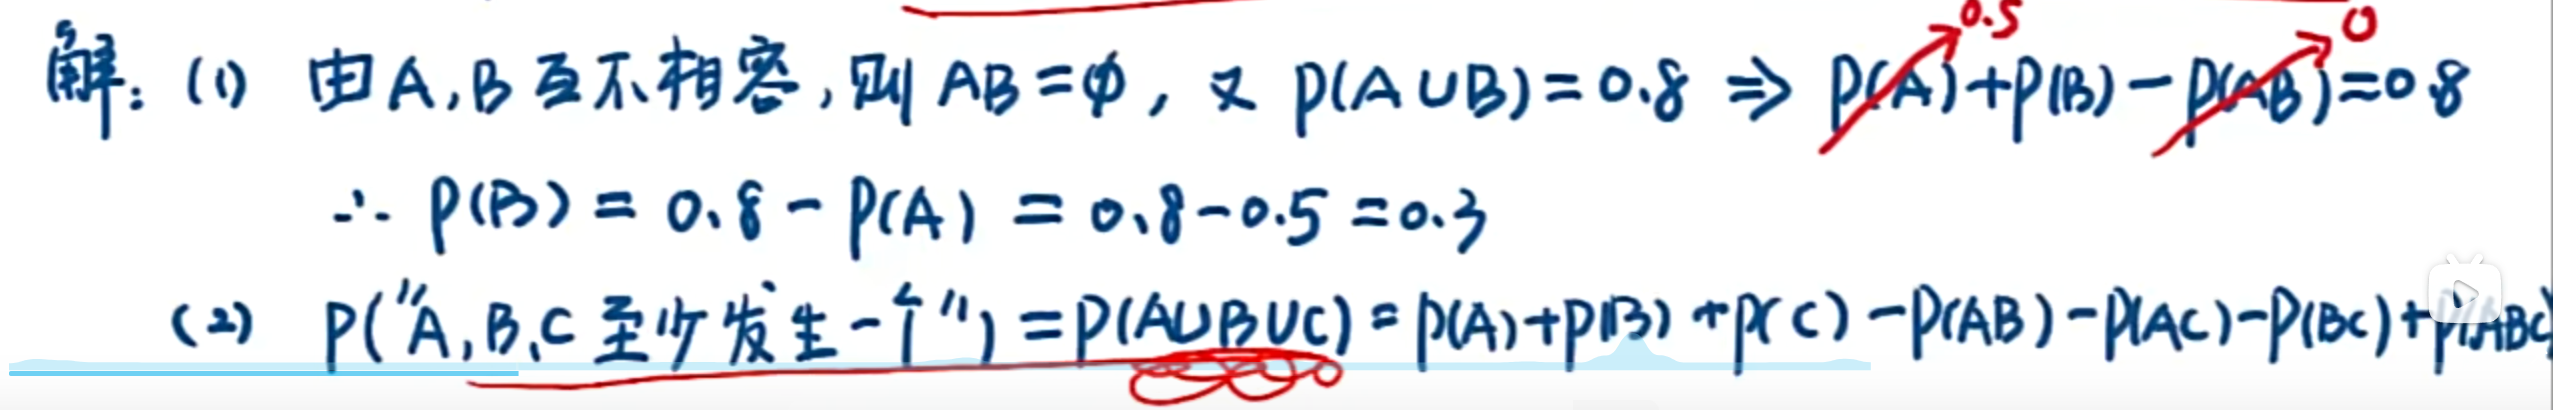 0.5 0
解: (1) 由A,B互不相容,则 AB=φ, 又 P(A∪B)=0.8 ⇒ P(A)+P(B)-P(AB)=0.8
∴ P(B) = 0.8 - P(A) = 0.8-0.5 =0.3
(2) P("A,B,C至少发生一个")=P(A∪B∪C)=P(A)+P(B)+P(C)-P(AB)-P(AC)-P(BC)+P(ABC)